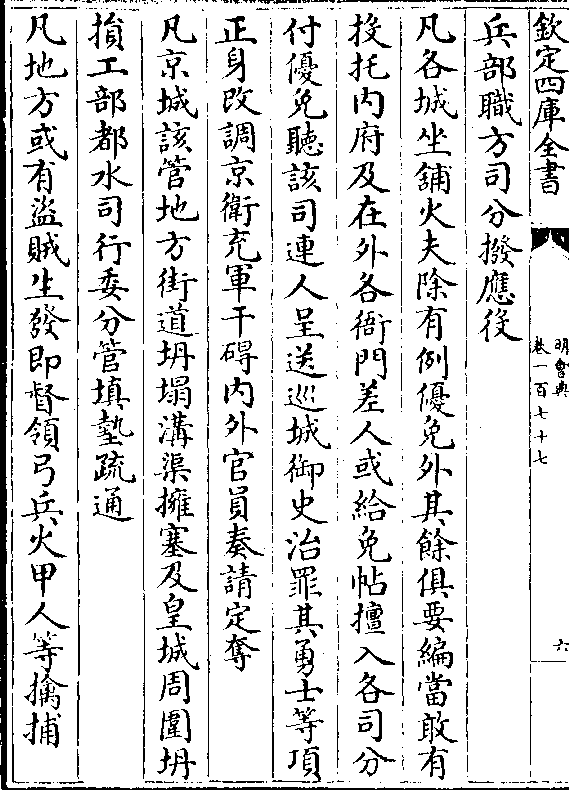 欽定四庫全書
明會典
卷一百七十七
六
兵部職方司分撥應役
凡各城坐舖火夫除有例優免外其餘俱要編當敢有
投托内府及在外各衙門差人或給免帖擅入各司分
付優免聽該司連人呈送巡城御史治罪其勇士等項
正身改調京衛充軍干碍内外官員奏請定奪
凡京城該管地方街道坍塌溝渠擁塞及皇城周圍坍
損工部都水司行委分管填墊疏通
凡地方或有盜賊生發即督領弓兵火甲人等擒捕